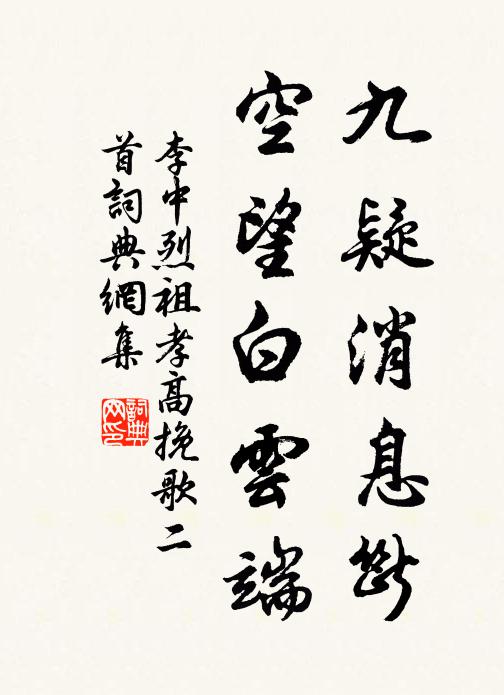 九疑消息斷
空望白雲端
李中烈祖孝高挽歌二
首詞典網集
詞典网印